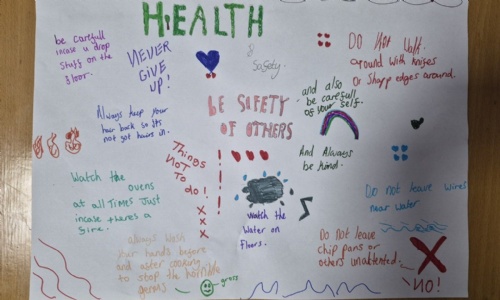 HEALTH
&
Safety.
be carefull
incase u drop
stuff on the
floor.
NEVER
GIVE
UP!
Do Not Walk
around with knifes
or Sharp edges around.
and also
be carefull
of your self.
BE SAFETY
OF OTHERS
Always keep your
hair back so its
not got hairs in.
Things
NOT
TO
do!
And Always
be kind.
Watch the
ovens
at all Times Just
incase theres a
fire.
Watch the
Water on
floors.
Do not leave wires
near water
Do not leave
chip pans or
others unattented.
NO!
always Wash
your hands before
and after cooking
to stop the horrible
germs